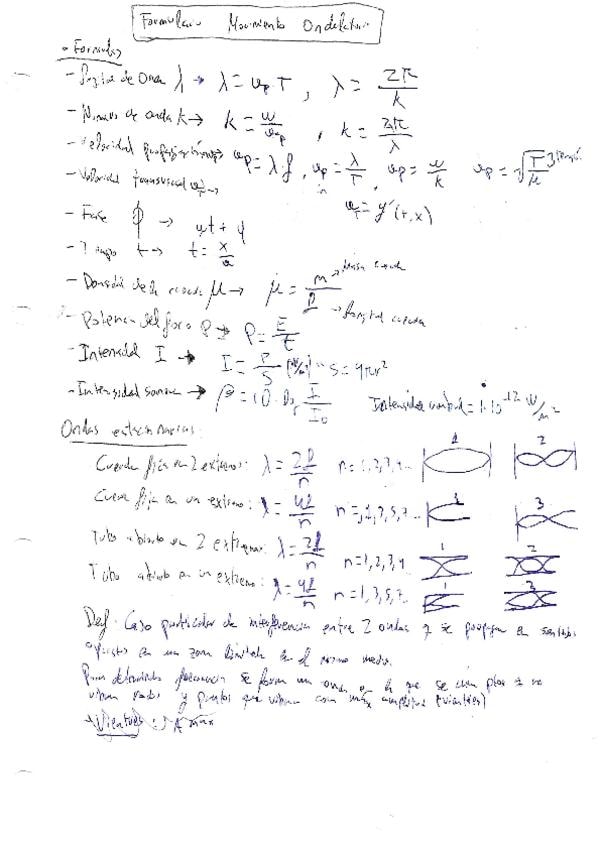 Formulario Movimiento Ondulatorio
- Formulas
- Longitud de Onda λ → λ = v_p T , λ = 2π/k
- Número de onda k → k = w/v_p , k = 2π/λ
- Velocidad propagación v_p = λ f, v_p = λ/T, v_p = w/k v_p = √(T/μ)
- Velocidad transversal v_T → v_T = y'(t,x)
- Fase φ → wt + φ
- Tiempo t → t = x/v
- Densidad de la cuerda μ → μ = m/l → Masa cuerda → Longitud cuerda
- Potencia del foco P → P = E/t
- Intensidad I → I = P/S (W/m²) - S = 4πr²
- Intensidad sonora → β = 10 · log I/I₀ Intensidad umbral = 1·10⁻¹² W/m²
Ondas estacionarias:
Cuerda fija en 2 extremos: λ = 2l/n n = 1,2,3,4... 1 2
Cuerda fija en un extremo: λ = 4l/n n = 1,3,5,7... 1 3
Tubo abierto en 2 extremos: λ = 2l/n n = 1,2,3,4 1 2
Tubo abierto en un extremo: λ = 4l/n n = 1,3,5,7... 3
Def: Caso particular de interferencia entre 2 ondas q se propagan en sentidos
opuestos en un zona limitada en el mismo medio.
Para determinada frecuencia se forma un onda en la que se
vibran nodos y puntos que vibran con máx amplitud (vientres)
→ Vientres: A max